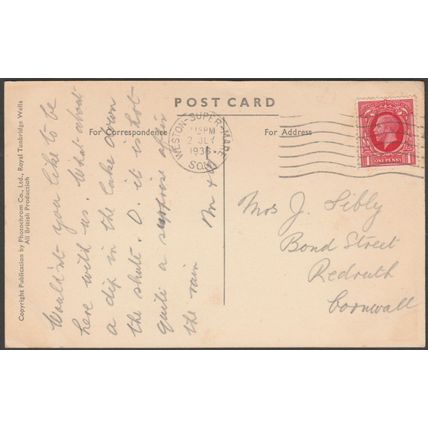 POST CARD
For Correspondence
For Address
WESTON-SUPER-MARE
PM
2 JLY
1936
SOM
1 ONE PENNY 1
Wouldn't you like to be
here with us. What about
a dip in the lake down
the shute. O. it is hot
quite a surprise after
the rain
Mrs J. Sibly
Bond Street
Redruth
Cornwall
Copyright Publication by Photochrom Co., Ltd., Royal Tunbridge Wells
All British Production